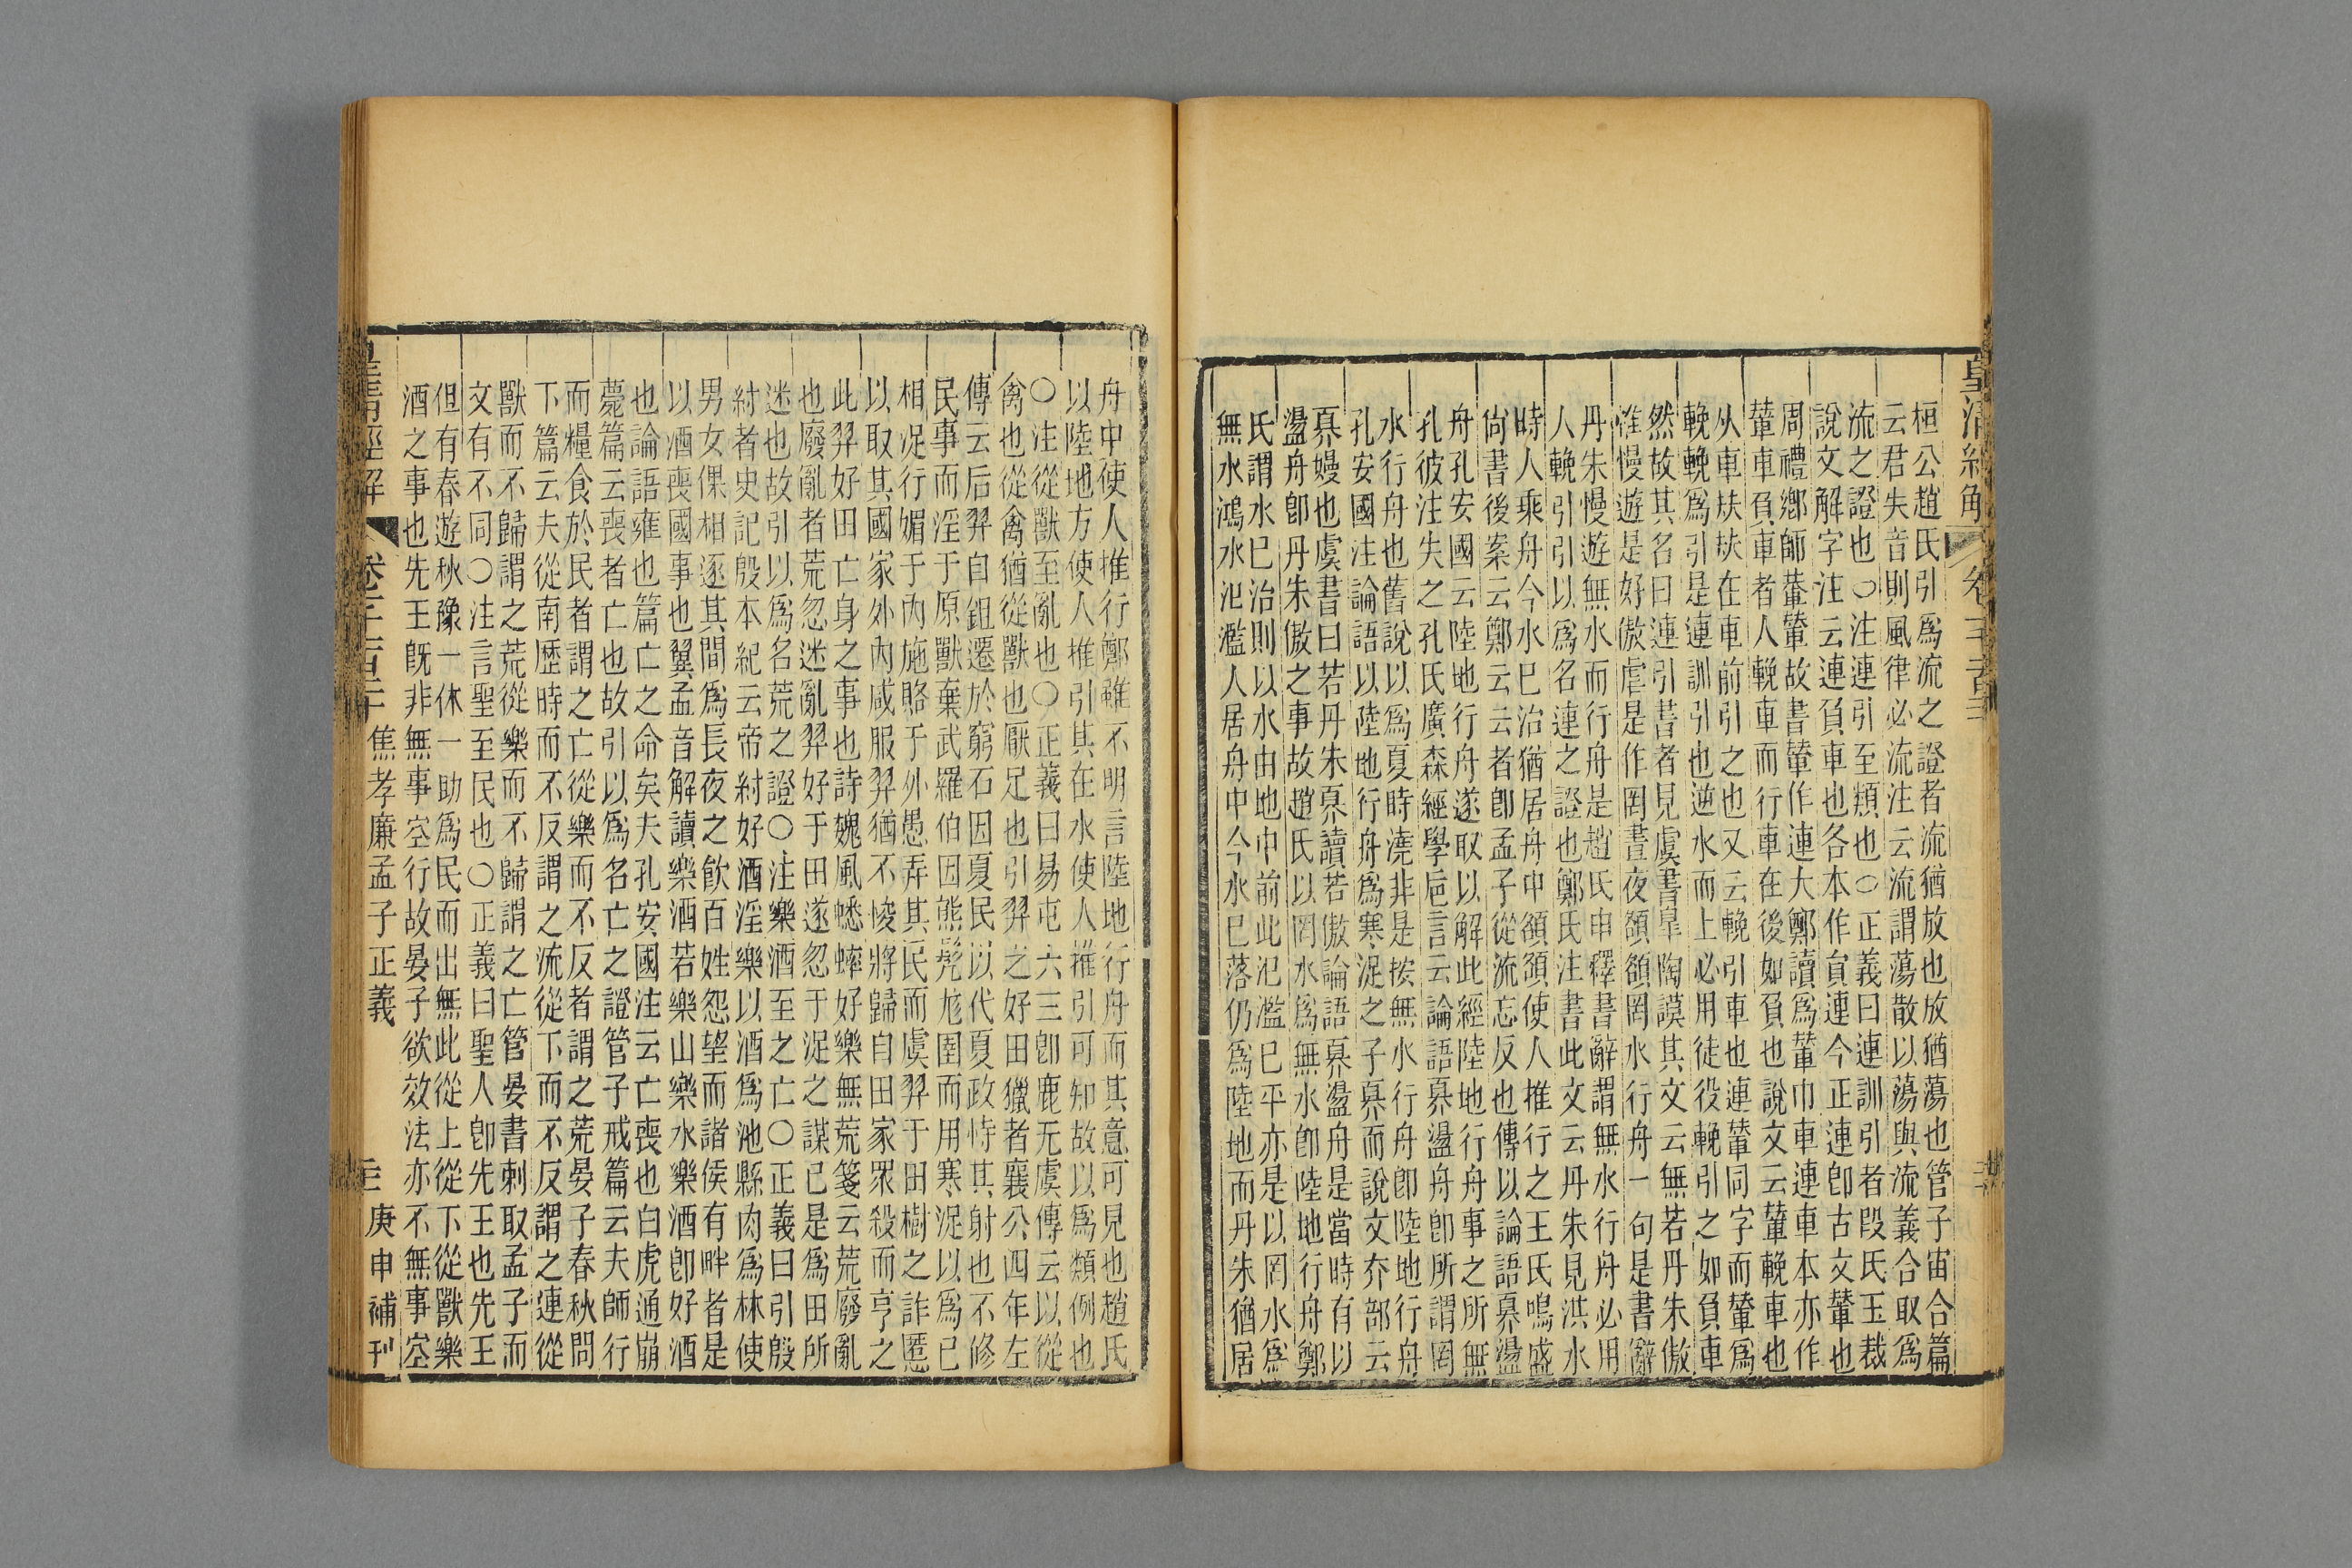 皇清經解
桓公趙氏引爲流之證者流猶放也放猶蕩也管子宙合篇
云君失音則風律必流注云流謂蕩散以蕩與流義合取爲
流之證也〇注連引至類也〇正義曰連訓引者段氏玉裁
說文解字注云連負車也各本作負連今正連卽古文輦也
周禮鄉師輂輦故書輦作連大鄭讀爲輦巾車連車本亦作
輦車負車者人輓車而行車在後如負也說文云輦輓車也
从車㚘㚘在車前引之也又云輓引車也連輦同字而輦爲
輓輓爲引是連訓引也逆水而上必用徒役輓引之如負車
然故其名曰連引書者見虞書皐陶謨其文云無若丹朱傲
惟慢遊是好傲虐是作罔晝夜頟頟罔水行舟一句是書辭
丹朱慢遊無水而行舟是趙氏申釋書辭謂無水行舟必用
人輓引引以爲名連之證也鄭氏注書此文云丹朱見洪水
時人乘舟今水巳治猶居舟中頟頟使人推行之王氏鳴盛
尙書後案云鄭云云者卽孟子從流忘反也傳以論語奡盪
舟孔安國云陸地行舟遂取以解此經陸地行舟事之所無
孔彼注失之孔氏廣森經學卮言云論語奡盪舟卽所謂罔
水行舟也舊說以爲夏時澆非是按無水行舟卽陸地行舟
孔安國注論語以陸地行舟爲寒浞之子奡而說文夰部云
奡嫚也虞書曰若丹朱奡讀若傲論語奡盪舟是當時有以
盪舟卽丹朱傲之事故趙氏以罔水爲無水卽陸地行舟鄭
氏謂水巳治則以水由地中前此氾濫巳平亦是以罔水爲
無水鴻水氾濫人居舟中今水巳落仍爲陸地而丹朱猶居
舟中使人推行鄭雖不明言陸地行舟而其意可見也趙氏
以陸地方使人推引其在水使人推引可知故以爲類例也
〇注從獸至亂也〇正義曰易屯六三卽鹿无虞傳云以從
禽也從禽猶從獸也厭足也引羿之好田獵者襄公四年左
傳云后羿自鉏遷於窮石因夏民以代夏政恃其射也不修
民事而淫于原獸棄武羅伯因熊髡尨圉而用寒浞以爲已
相浞行媚于內施賂于外愚弄其民而虞羿于田樹之詐慝
以取其國家外內咸服羿猶不悛將歸自田家眾殺而亨之
此羿好田亡身之事也詩魏風蟋蟀好樂無荒箋云荒廢亂
也廢亂者荒忽迷亂羿好于田遂忽于浞之謀巳是爲田所
迷也故引以爲名荒之證〇注樂酒至之亡〇正義曰引殷
紂者史記殷本紀云帝紂好酒淫樂以酒爲池縣肉爲林使
男女倮相逐其間爲長夜之飮百姓怨望而諸侯有畔者是
以酒喪國事也翼孟音解讀樂酒若樂山樂水樂酒卽好酒
也論語雍也篇亡之命矣夫孔安國注云亡喪也白虎通崩
薨篇云喪者亡也故引以爲名亡之證管子戒篇云夫師行
而糧食於民者謂之亡從樂而不反者謂之荒晏子春秋問
下篇云夫從南歷時而不反謂之流從下而不反謂之連從
獸而不歸謂之荒從樂而不歸謂之亡管晏書刺取孟子而
文有不同〇注言聖至民也〇正義曰聖人卽先王也先王
但有春遊秋豫一休一助爲民而出無此從上從下從獸樂
酒之事也先王旣非無事空行故晏子欲效法亦不無事空
焦孝廉孟子正義
庚申補刊